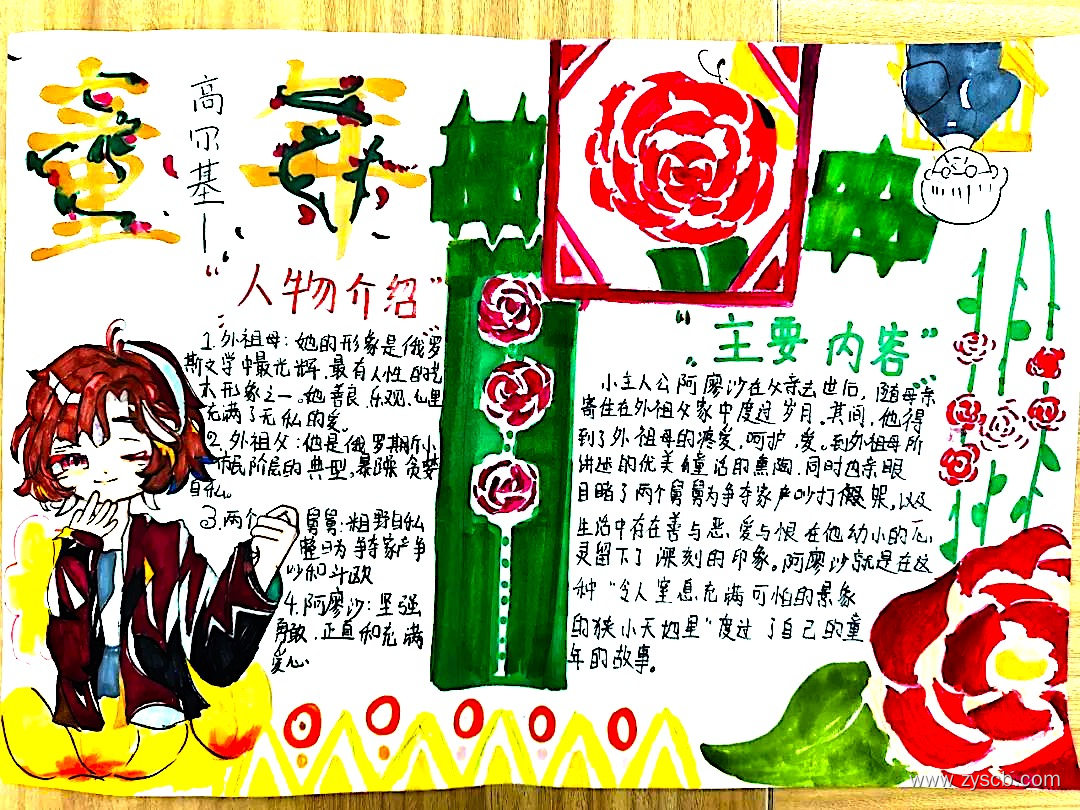 童年
高尔基—
"人物介绍"
1.外祖母:她的形象是俄罗
斯文学中最光辉.最有人性的艺
术形象之一。她善良.乐观、心里
充满了无私的爱。
2.外祖父:他是俄罗斯小
市民阶层的典型,暴躁 贪婪
自私。
3.两个舅舅:粗野自私
整日为争夺家产争
吵和斗殴
4.阿廖沙:坚强
勇敢.正直和充满
爱心
"主要内容"
小主人公阿廖沙在父亲去世后,随母亲
寄住在外祖父家中度过岁月.其间,他得
到了外祖母的疼爱.呵护,爱。到外祖母所
讲述的优美童话的熏陶.同时也亲眼
目睹了两个舅舅为争夺家产吵打架.以及
生活中存在善与恶.爱与恨在他幼小的心
灵留下了深刻的印象。阿廖沙就是在这
种"令人窒息.充满可怕的景象
的狭小天地里"度过了自己的童
年的故事。
www.zyscb.com